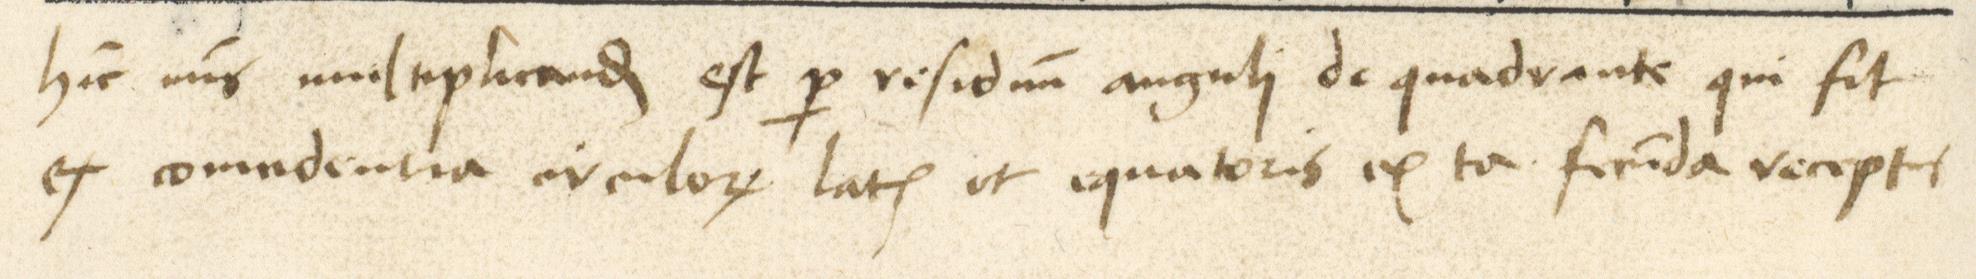 hic̄ nūs multiplicandꝰ est ꝑ residuū anguli de quadrante qui fit
ex coincidentia circuloꝝ latꝭ et equatoris ex ta. secūda receptus